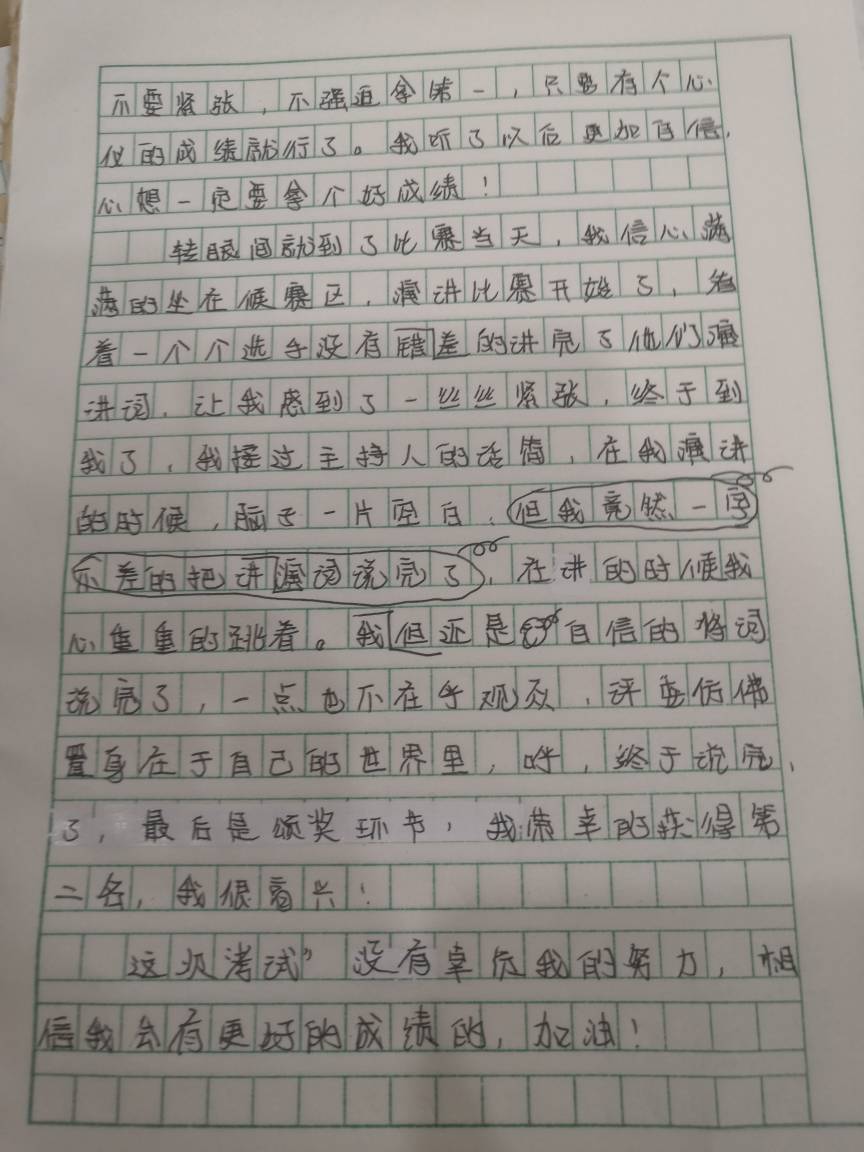 不要紧张，不强迫拿第一，只要有个心
仪的成绩就行了。我听了以后更加自信，
心想一定要拿个好成绩！
转眼间就到了比赛当天，我信心满
满的坐在候赛区，演讲比赛开始了，看
着一个个选手没有错差的讲完了他们演
讲词，让我感到了一丝丝紧张，终于到
我了，我接过主持人的话筒，在我演讲
的时候，脑子一片空白，但我竟然一字
不差的把讲演词说完了，在讲的时候我
心重重的跳着。我但还是自信的将词
说完了，一点也不在乎观众，评委仿佛
置身在于自己的世界里，呼，终于说完
了，最后是颁奖环节，我荣幸的获得第
二名，我很高兴！
这次考试”没有辜负我的努力，相
信我会有更好的成绩的，加油！